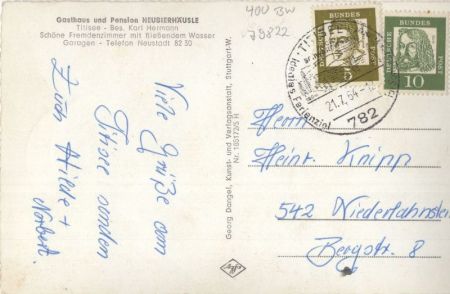 Gasthaus und Pension NEUBIERHÄUSLE
Titisee - Bes. Karl Hermann
Schöne Fremdenzimmer mit fließendem Wasser
Garagen - Telefon Neustadt 82 30
Viele Grüße vom
Titisee senden
Euch Hilde +
Norbert.
Georg Dangel, Kunst- und Verlagsanstalt, Stuttgart-W.
400 BW
79822
DEUTSCHE BUNDES POST
5
DEUTSCHE BUNDES POST
10
Ferienziel
21.7.64
782
Herrn
Heinr. Knipp
542 Niederlahnstein
Bergstr. 8
Agfa